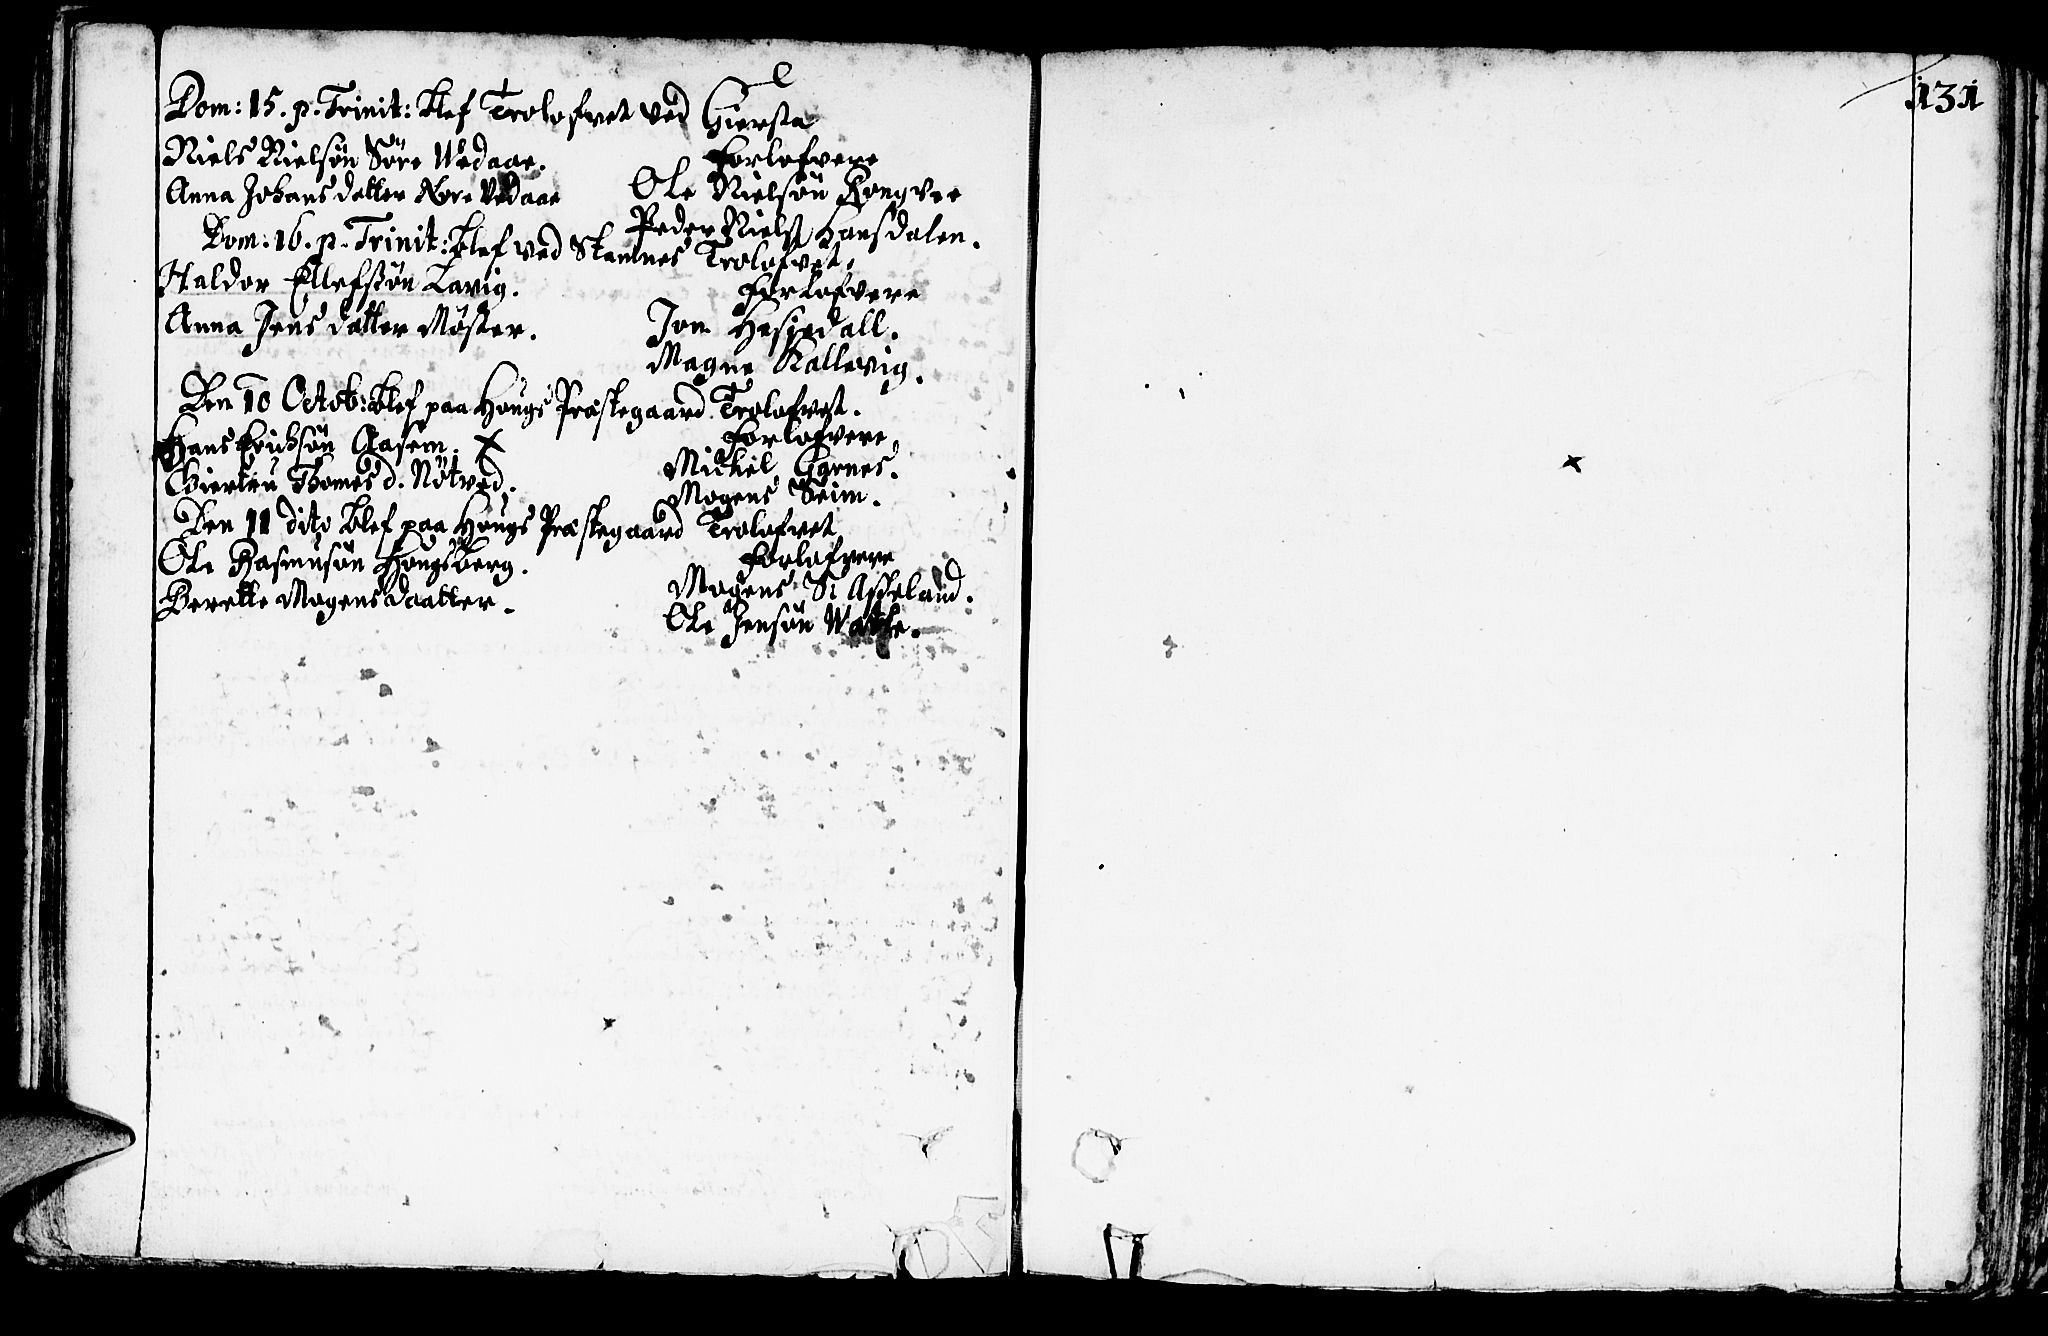 Dom: 15. p. Trinit: blef Trolofvet ved Giersta
Niels Nielsøn Söre Wedaae.
Anna Johans datter Nore Vedaae
Forlofvere
Ole Nielsøn Kongvee
Peder Niels Hansdalen.
Dom: 16. p. Trinit: blef ved Stamnes Trolofvet,
Haldor Ellefsøn Lavig.
Anna Jens datter Møster.
Forlofvere
Jon Hesjedall.
Magne Kallevig.
Den 10 Octob: blef paa Hougs Præstegaard Trolofvet.
Hans Erichsøn Aasem. x
Giertru Thomes d. Nötved.
Forlofvere
Mickel Garnes.
Mogens Seim.
Den 11 dito blef paa Hougs Præstegaard Trolofvet
Ole Rasmusøn Hougsberg.
Berette Mogens daatter.
Forlofvere
Mogens Asseland.
Ole Jensøn
131